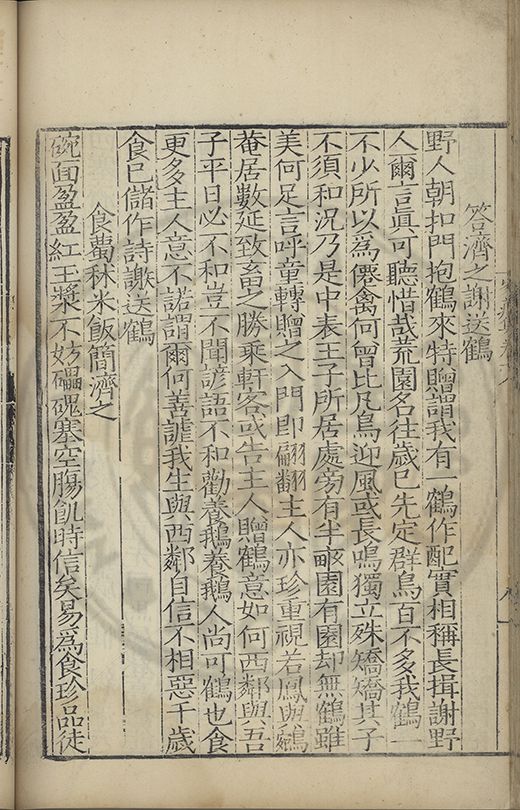 答濟之謝送鶴
野人朝扣門抱鶴來特贈謂我有一鶴作配實相稱長揖謝野
人爾言眞可聽惜哉荒園名往歲巳先定群鳥百不多我鶴一
不少所以爲僊禽何曾比凡鳥迎風或長鳴獨立殊矯矯其子
不須和況乃是中表王子所居處旁有半畝園有園却無鶴雖
美何足言呼童轉贈之入門即翩翻主人亦珍重視若鳳與鵷
菴居數延致畜之勝乘軒客或告主人贈鶴意如何西鄰與吾
子平日必不和豈不聞諺語不和勸養鵝養鵝人尚可鶴也食
更多主人意不諾謂爾何善讙我生與西鄰自信不相惡千歲
食巳儲作詩謝送鶴
食薥秫米飯簡濟之
碗面盈盈紅玉漿不妨礧磈塞空腸飢時信矣易爲食珍品徒